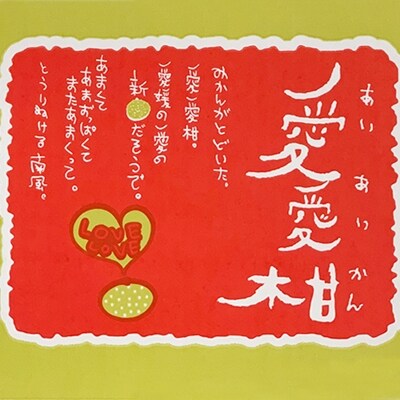 愛愛柑
あいあいかん
みかんがとどいた。
愛愛柑。
愛媛の愛の
新だそうで。
あまくて
あまずっぱくて
またあまくって。
とおりぬける南風。
LOVE
LOVE